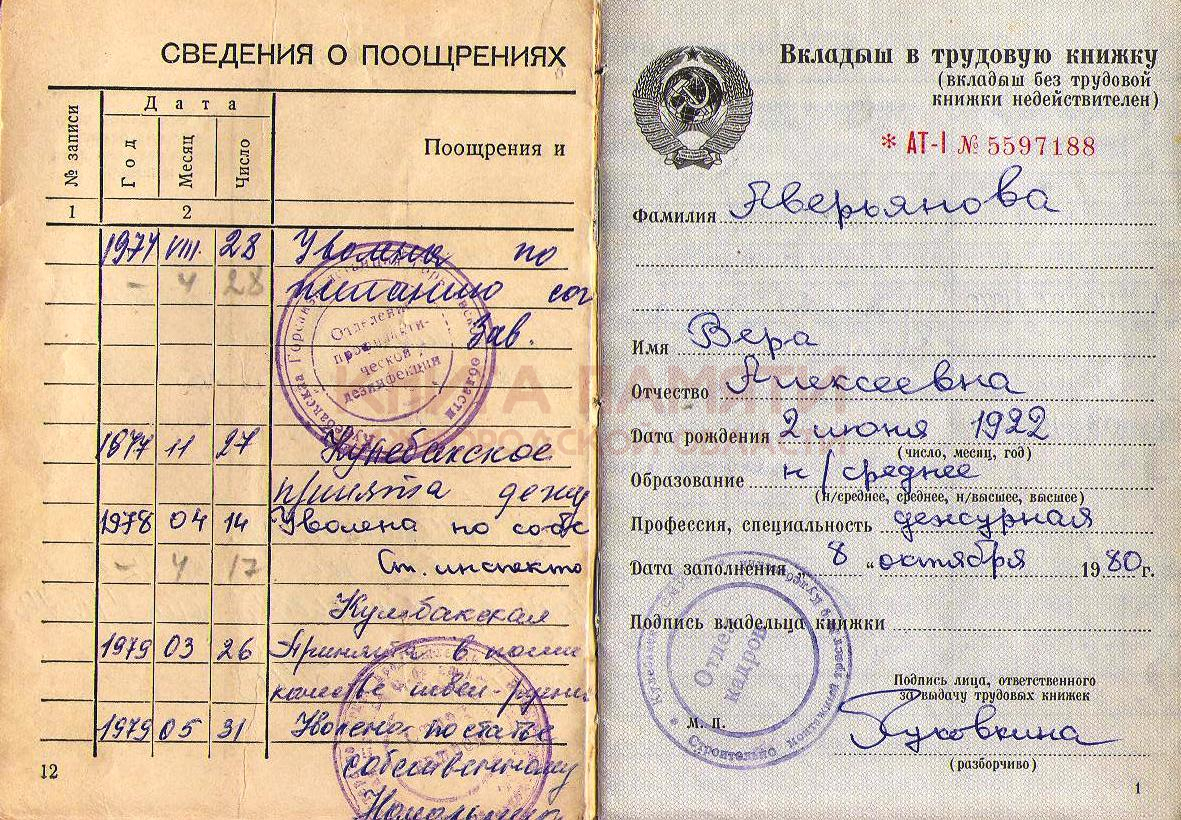 СВЕДЕНИЯ О ПООЩРЕНИЯХ
№ записи
Дата
Год
Месяц
Число
Поощрения и
1
2
1977 VIII. 28 Уволена по
- 4 28
питанию сог
Зав.
Отделение
профилакти-
ческой
дезинфекции
1977 11 27 Кулебакское
принята деж
1978 04 14 Уволена по собс
- 4 17
Ст. инспекто
Кулебакская
1979 03 26 Принята в
качестве
1979 05 31 Уволена по статье
собственному
12
Вкладыш в трудовую книжку
(вкладыш без трудовой
книжки недействителен)
* АТ-I № 5597188
Фамилия Аверьянова
Имя Вера
Отчество Алексеевна
Дата рождения 2 июня 1922
(число, месяц, год)
Образование н/среднее
(н/среднее, среднее, н/высшее, высшее)
Профессия, специальность дежурная
Дата заполнения „8“ октября 1980г.
Подпись владельца книжки
Отдел
кадров
Подпись лица, ответственного
за выдачу трудовых книжек
М. П.
Пуковкина
(разборчиво)
1
КНИГА ПАМЯТИ
НИЖЕГОРОДСКОЙ ОБЛАСТИ